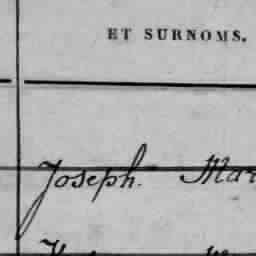 ET SURNOMS.
Joseph. Mar